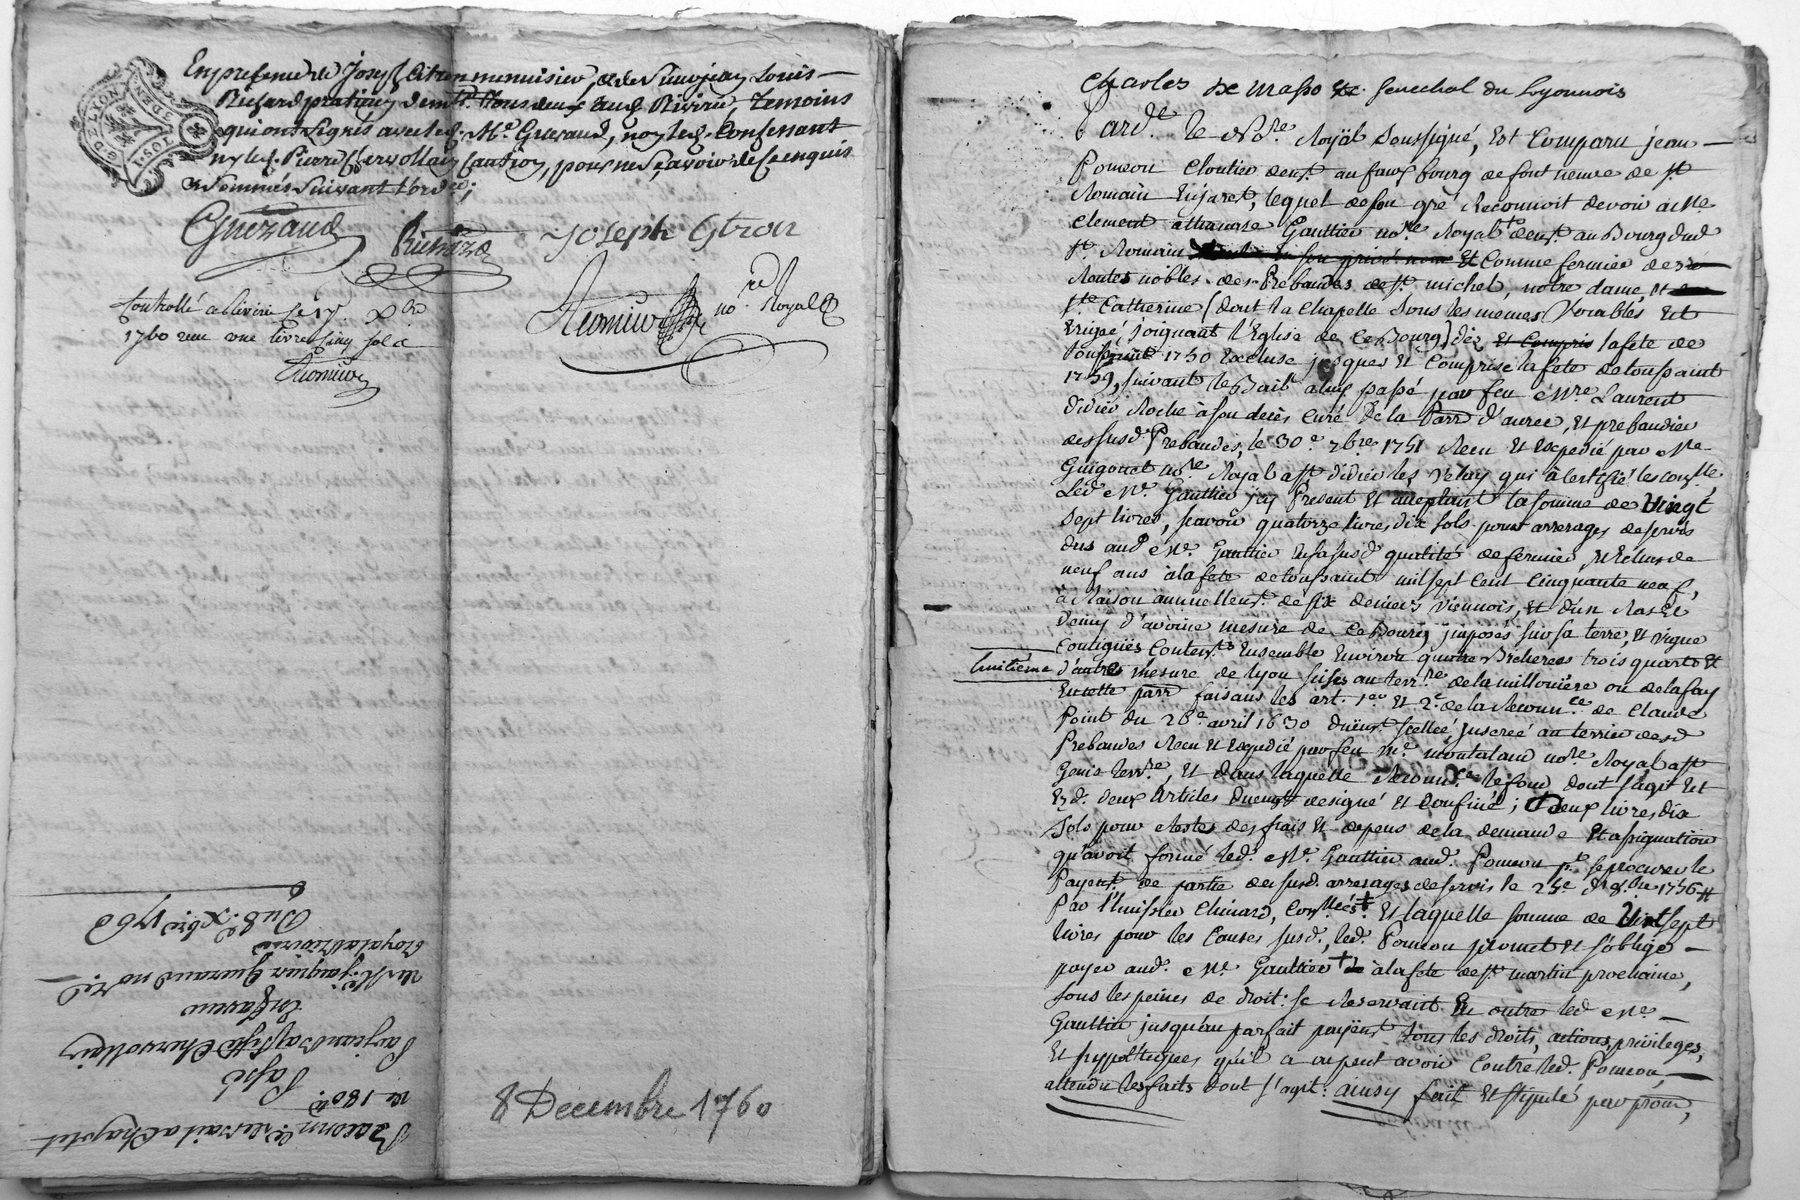 G. DE LYON
En presence de Joseph Citron menuisier, et de Sieur jean Louis
Richard praticien demt. tous deux aud. Rivirie, Temoins
qui ont signés avec led. Me. Gueraud, non led. Consenant
ny led. Pierre Chervollain Caution, pour ne sçavoir de ce enquis
et sommés suivant l'ordce;
Gueraud Richard Joseph Gtron
nore. Royal
Controllé a Rivirie Le 17 Xbre
1760 reçu une livre cinq sols
8 Decembre 1760
Du 8e. Xbre. 1760
Royal a Rivirie
Me. jaquier Gueraud notre.
En faveur
Par jean Baptiste Chervollain
Passé
de 180 lt
Charles De Masso &c. Senechal du Lyonnois
Pardt. le Nore. Royal Soussigné, Est Comparu jean
Poncon Cloutier demt. au faux bourg de font neuve de St.
Romain En jaret, lequel de son gré Reconnoit devoir a Me.
Clement Gaultier nore. Royal demt. au Bourg dud.
St. Romain en son privé nom Et Comme fermier des
Rentes nobles des Prebandes de St. michel, nôtre dame, et
Ste. Catherine (dont la Chapelle Sous les memes Vocables Est
Erigeé joignant l'Eglise de Ce Bourg) dès et Compris la fete de
toussaint 1750 Excluse jusques Et Comprise la fete de toussaint
1759, suivant le Bail a luy passé par feu Mre. Laurent
Didier Roche à son decès Curé De la Parr. d'aurec, Et prebandier
desusd. Prebandes, le 30e. 7bre 1751 Recu Et Expedié par Me.
Guigonet nore. Royal a St. Didier les Velay qui à Certifié les conslle.
Led. Me. Gaultier icy Present Et acceptant la somme de Vingt
Sept livres, scavoir quatorze livres dix sols pour arrerages de servis
dus aud. Me. Gaultier En sa susd. qualité de fermier, Et Echus de
neuf ans à la fete de toussaint mil sept Cent Cinquante neuf,
à Raison annuellemt. de six deniers Viennois, Et d'un Ras Et
demy d'avoine mesure de Ce Bourg imposés sur sa terre, Et Vigne
Contiguës Contents. Ensemble Environ quatre Bicherees trois quarts Et
huitieme d'autre mesure de Lyon sises au terrre. de la millonière ou de la fay
En cette parr. faisans les art. 1er. Et 2e. de la Reconnce. de Claude
Point du 26e. avril 1630 Duëmt. scelleé inscreé au terrier desd.
Prebandes Recu Et Expedié par feu Me. montaland nore. Royal a St.
Genis terrre, Et dans laquelle Reconnce. le fond dont s'agit Est
Esd. deux Articles Duemt. designé Et Confiné; Et deux livres dix
Sols pour Restes des frais Et depens de la demande Et assignation
qu'avoit formé led. Me. Gaultier aud. Poncon pr. se procurer le
Payemt. de partie desusd. arrerages de servis le 23e. d'8.bre 1756
Par l'huissier Chinard, Conslleés. Et laquelle somme de Vint sept
livres pour les Causes susd., led. Poncon promet Et s'oblige
payer aud. Me. Gaultier à la fete de St. martin prochaine,
sous les peines de droit: se Reservant En outre led. Me.
Gaultier jusqu'au parfait payemt. tous les droits, actions, privileges,
Et hypoteques qu'il a ou peut avoir Contre led. Poncon,
attendu les faits dont s'agit: ainsy fait Et stipulé par prom.,